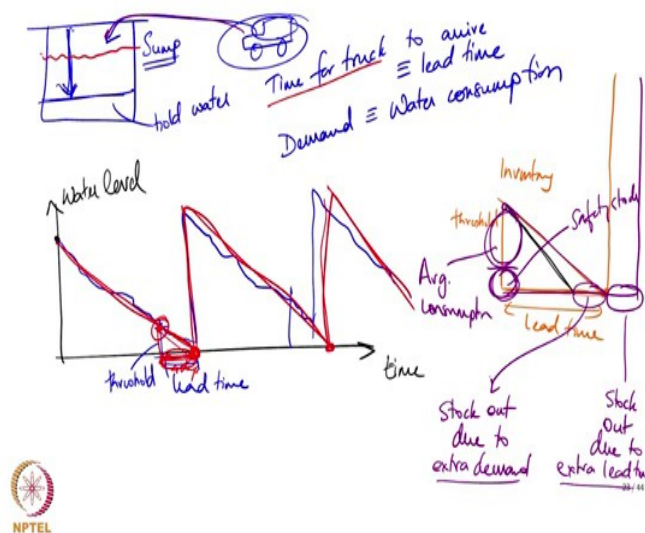 Sump
hold water
Time for truck to arrive
≡ lead time
Demand ≡ Water consumption
Water level
threshold
lead time
time
Inventory
threshold
Safety stock
Avg.
consumptn
lead time
Stock out
due to
extra demand
Stock
Out
due to
extra lead time
23 / 44
NPTEL